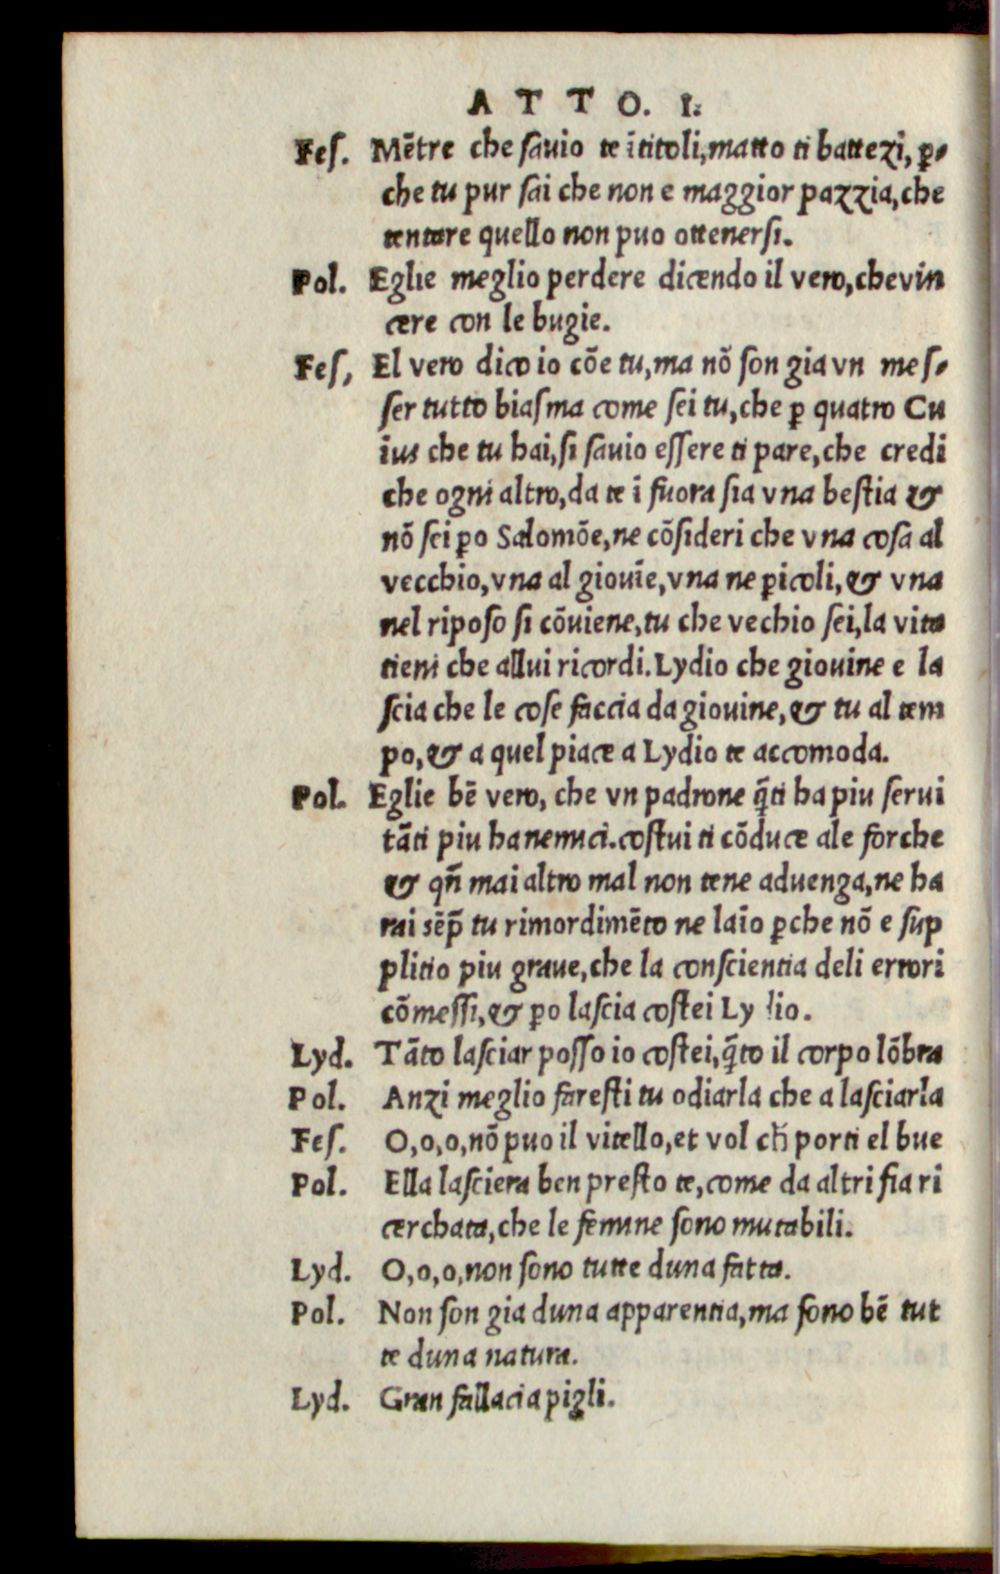 ATTO. I.
Feſ. Mētre che ſauio te ītitoli,matto ti battezi, ꝑ-
che tu pur ſai che non e maggior pazzia,che
tentare quello non puo ottenerſi.
Pol. Eglie meglio perdere dicendo il vero,chevin
cere con le bugie.
Feſ, El vero dico io cōe tu,ma nō ſon gia vn meſ-
ſer tutto biaſma come ſei tu,che ꝑ quatro Cu
ius che tu hai,ſi ſauio eſſere ti pare,che credi
che ogni altro,da te ī fuora ſia vna beſtia &
nō ſei ꝑo Salomōe,ne cōſideri che vna coſa al
vecchio,vna al giouīe,vna ne ꝑicoli,& vna
nel ripoſo ſi cōuiene,tu che vechio ſei,la vita
tieni che allui ricordi.Lydio che giouine e la
ſcia che le coſe faccia da giouine,& tu al tem
po,& a quel piace a Lydio te accomoda.
Pol. Eglie bē vero, che vn padrone q̄ti ha piu ſerui
tāti piu ha nemici.coſtui ti cōduce ale forche
& qn̄ mai altro mal non tene aduenga,ne ha
rai sēp̄ tu rimordimēto ne laīo ꝑche nō e ſup
plitio piu graue,che la conſcientia deli errori
cōmeſſi,& ꝑo laſcia coſtei Ly dio.
Lyd. Tāto laſciar poſſo io coſtei,q̄to il corpo lōbra
Pol. Anzi meglio fareſti tu odiarla che a laſciarla
Feſ. O,o,o,nō puo il vitello,et vol ch̄ porti el bue
Pol. Ella laſciera ben preſto te,come da altri fia ri
cerchata,che le femine ſono mutabili.
Lyd. O,o,o,non ſono tutte duna fatta.
Pol. Non ſon gia duna apparentia,ma ſono bē tut
te duna natura.
Lyd. Gran fallacia pigli.